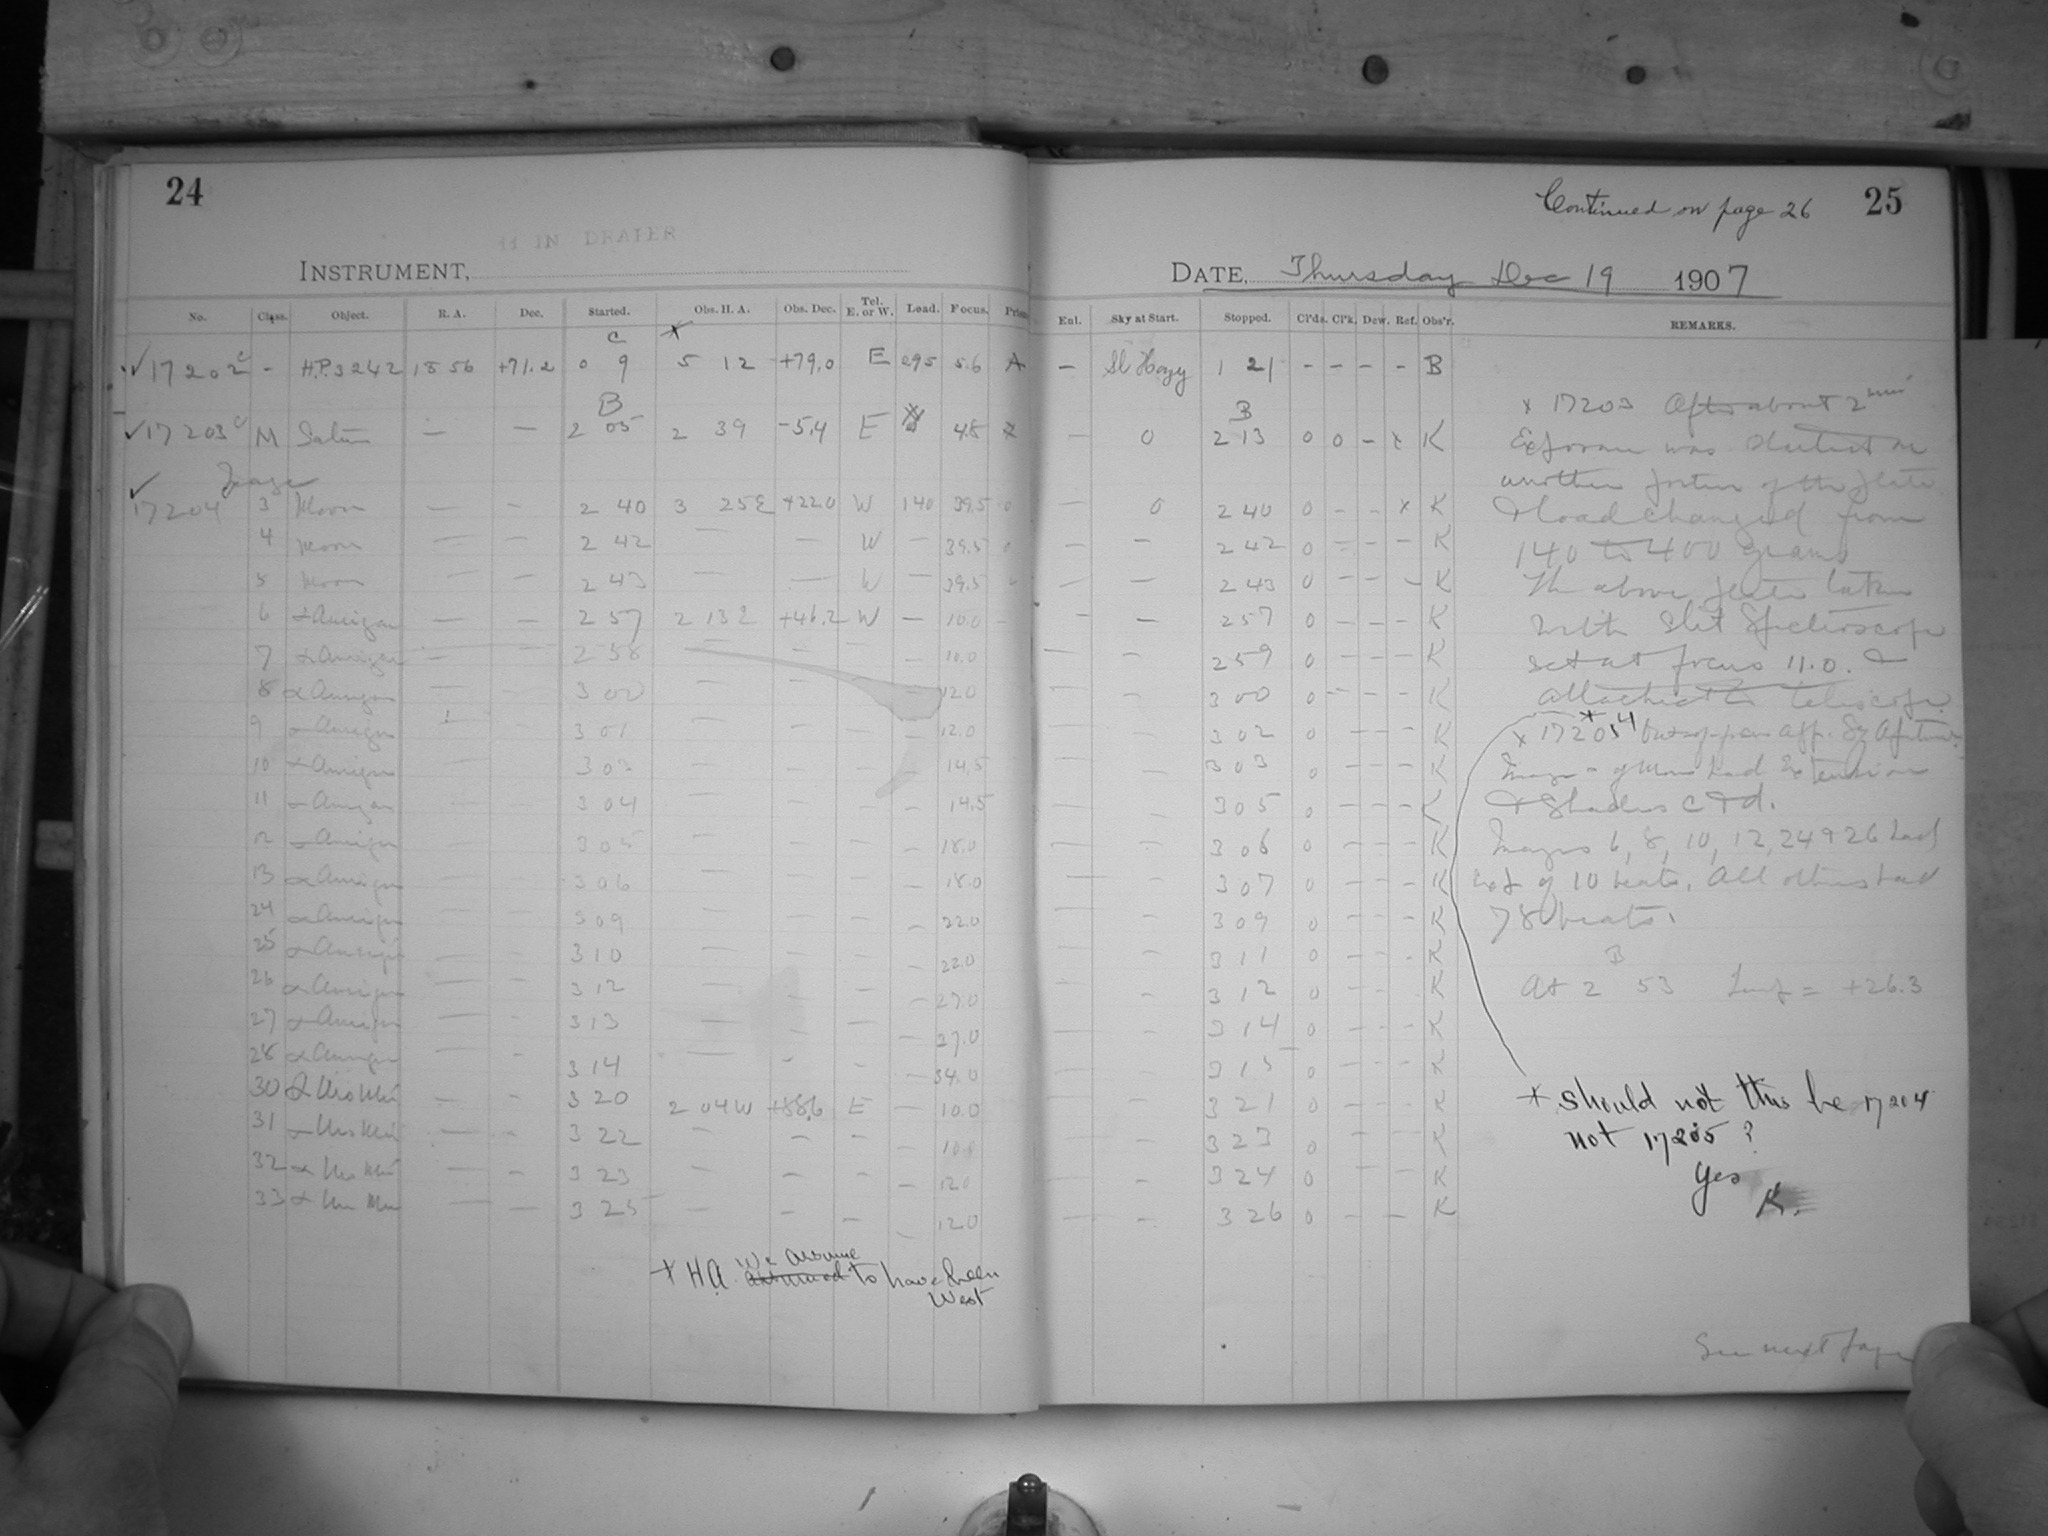 24
11 IN DRAPER
INSTRUMENT,
No. Class. Object. R. A. Dec. Started. Obs. H. A. Obs. Dec. Tel. E. or W. Load. Focus.
C *
✓ 17202 c - H.P. 3242 18 56 +71.2 0 9 5 12 +79.0 E 295 5.6 A
B
✓ 17203 c M Saturn — — 2 05 2 39 -5.4 E 4.8 x
✓ Image
17204 3 Moon — — 2 40 3 25E +22.0 W 140 39.5 0
4 Moon — — 2 42 — — W — 39.5
5 Moon — — 2 43 — — W — 39.5
6 α Aurigae — — 2 57 2 13E +46.2 W — 10.0
7 α Aurigae — — 2 58 — — — — 10.0
8 α Aurigae — — 3 00 — — — — 12.0
9 α Aurigae — — 3 01 — — — — 12.0
10 α Aurigae — — 3 03 — — — — 14.5
11 α Aurigae — — 3 04 — — — — 14.5
12 α Aurigae — — 3 05 — — — — 18.0
13 α Aurigae — — 3 06 — — — — 18.0
24 α Aurigae — — 3 09 — — — — 22.0
25 α Aurigae — — 3 10 — — — — 22.0
26 α Aurigae — — 3 12 — — — — 27.0
27 α Aurigae — — 3 13 — — — — 27.0
28 α Aurigae — — 3 14 — — — — 34.0
30 α Urs Min — — 3 20 2 04W +88.6 E — 10.0
31 α Urs Min — — 3 22 — — — — 10.0
32 α Urs Min — — 3 23 — — — — 12.0
33 α Urs Min — — 3 25 — — — — 12.0
* H.A. We assume
assumed to have been
West
Continued on page 26 25
DATE, Thursday Dec 19 1907
Ent. Sky at Start. Stopped. Cl'ds. Cl'k. Dew. Ref. Obs'r. REMARKS.
— Sl Hazy 1 21 - - - - B
B
— 0 2 13 0 0 - x K
— 0 2 40 0 - - x K
— — 2 42 0 - - - K
— — 2 43 0 - - - K
— — 2 57 0 - - - K
— — 2 59 0 - - - K
— — 3 00 0 - - - K
— — 3 02 0 - - - K
— — 3 03 0 - - - K
— — 3 05 0 - - - K
— — 3 06 0 - - - K
— — 3 07 0 - - - K
— — 3 09 0 - - - K
— — 3 11 0 - - - K
— — 3 12 0 - - - K
— — 3 14 0 - - - K
— — 3 15 0 - - - K
— — 3 21 0 - - - K
— — 3 23 0 - - - K
— — 3 24 0 - - - K
— — 3 26 0 - - - K
x 17203 After about 2 min
Exposure was started on
another portion of the plate
& load changed from
140 to 400 grams
The above plate taken
with Slit Spectroscope
set at focus 11.0. &
attached to telescope.
x 17205 4
Images of Moon had Extension
& Shaders c & d.
Images 6, 8, 10, 12, 24 & 26 had
exp of 10 beats. All others had
78 beats.
B
At 2 53 Temp = +26.3
* Should not this be 17204
not 17205?
Yes
K.
See next page